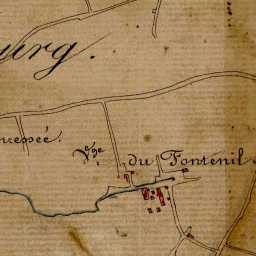 urg.
ressée.
V.ge du Fontenil